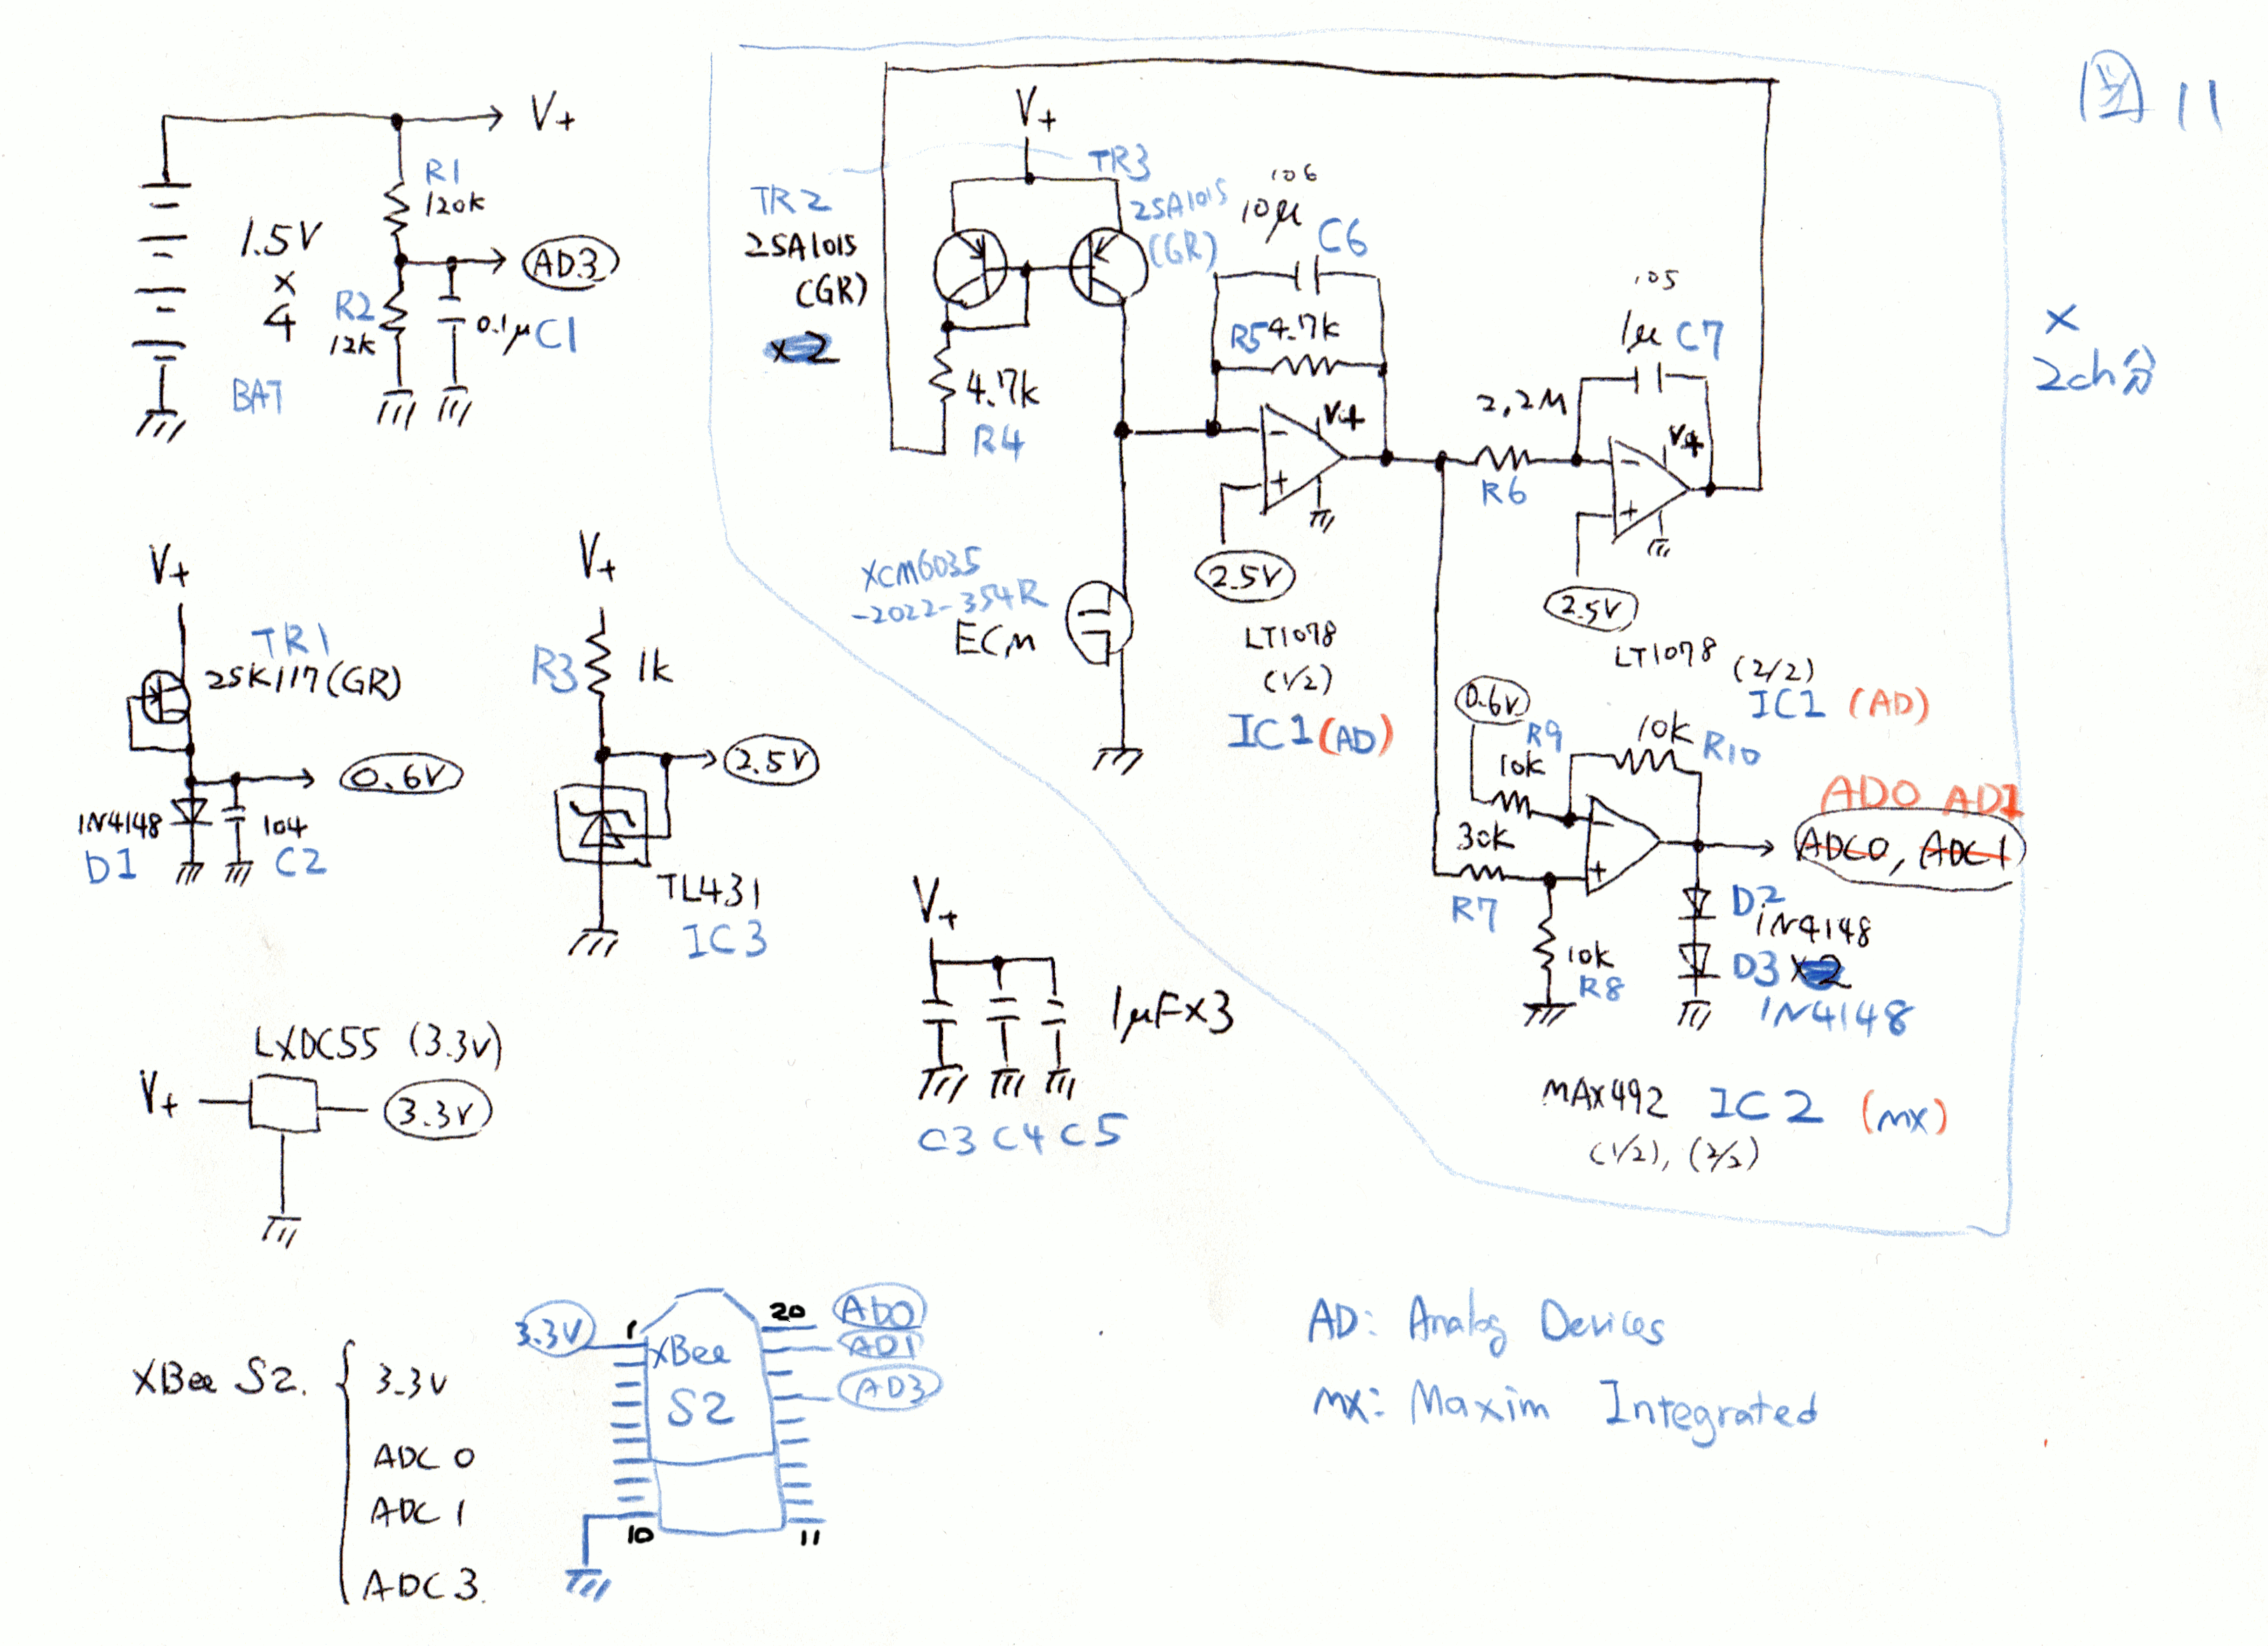 図11
V+
R1
120k
1.5V
×
4
BAT
AD3
R2
12k
0.1μ C1
V+
TR1
2SK117(GR)
0.6V
1N4148
D1
104
C2
V+
R3 1k
2.5V
TL431
IC3
LXDC55 (3.3V)
V+
3.3V
V+
1μF×3
C3 C4 C5
V+
TR2
2SA1015
(GR)
×2
TR3
2SA1015
(GR)
4.7k
R4
106
10μ
C6
R5 4.7k
V+
-
+
2.5V
LT1078
(1/2)
IC1 (AD)
XCM6035
-2022-354R
ECM
105
1μ C7
2.2M
R6
V+
-
+
2.5V
LT1078 (2/2)
IC1 (AD)
×
2ch分
0.6V
R9
10k
10k
R10
30k
R7
-
+
10k
R8
AD0 AD1
ADC0, ADC1
D2
1N4148
D3 ×2
1N4148
MAX492 IC2 (MX)
(1/2), (2/2)
XBee S2.
3.3V
ADC 0
ADC 1
ADC 3.
3.3V
1
20
AD0
AD1
AD3
XBee
S2
10
11
AD: Analog Devices
MX: Maxim Integrated